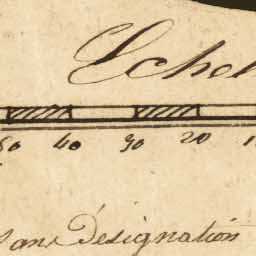 Echel
50 40 30 20 1
sans Désignation